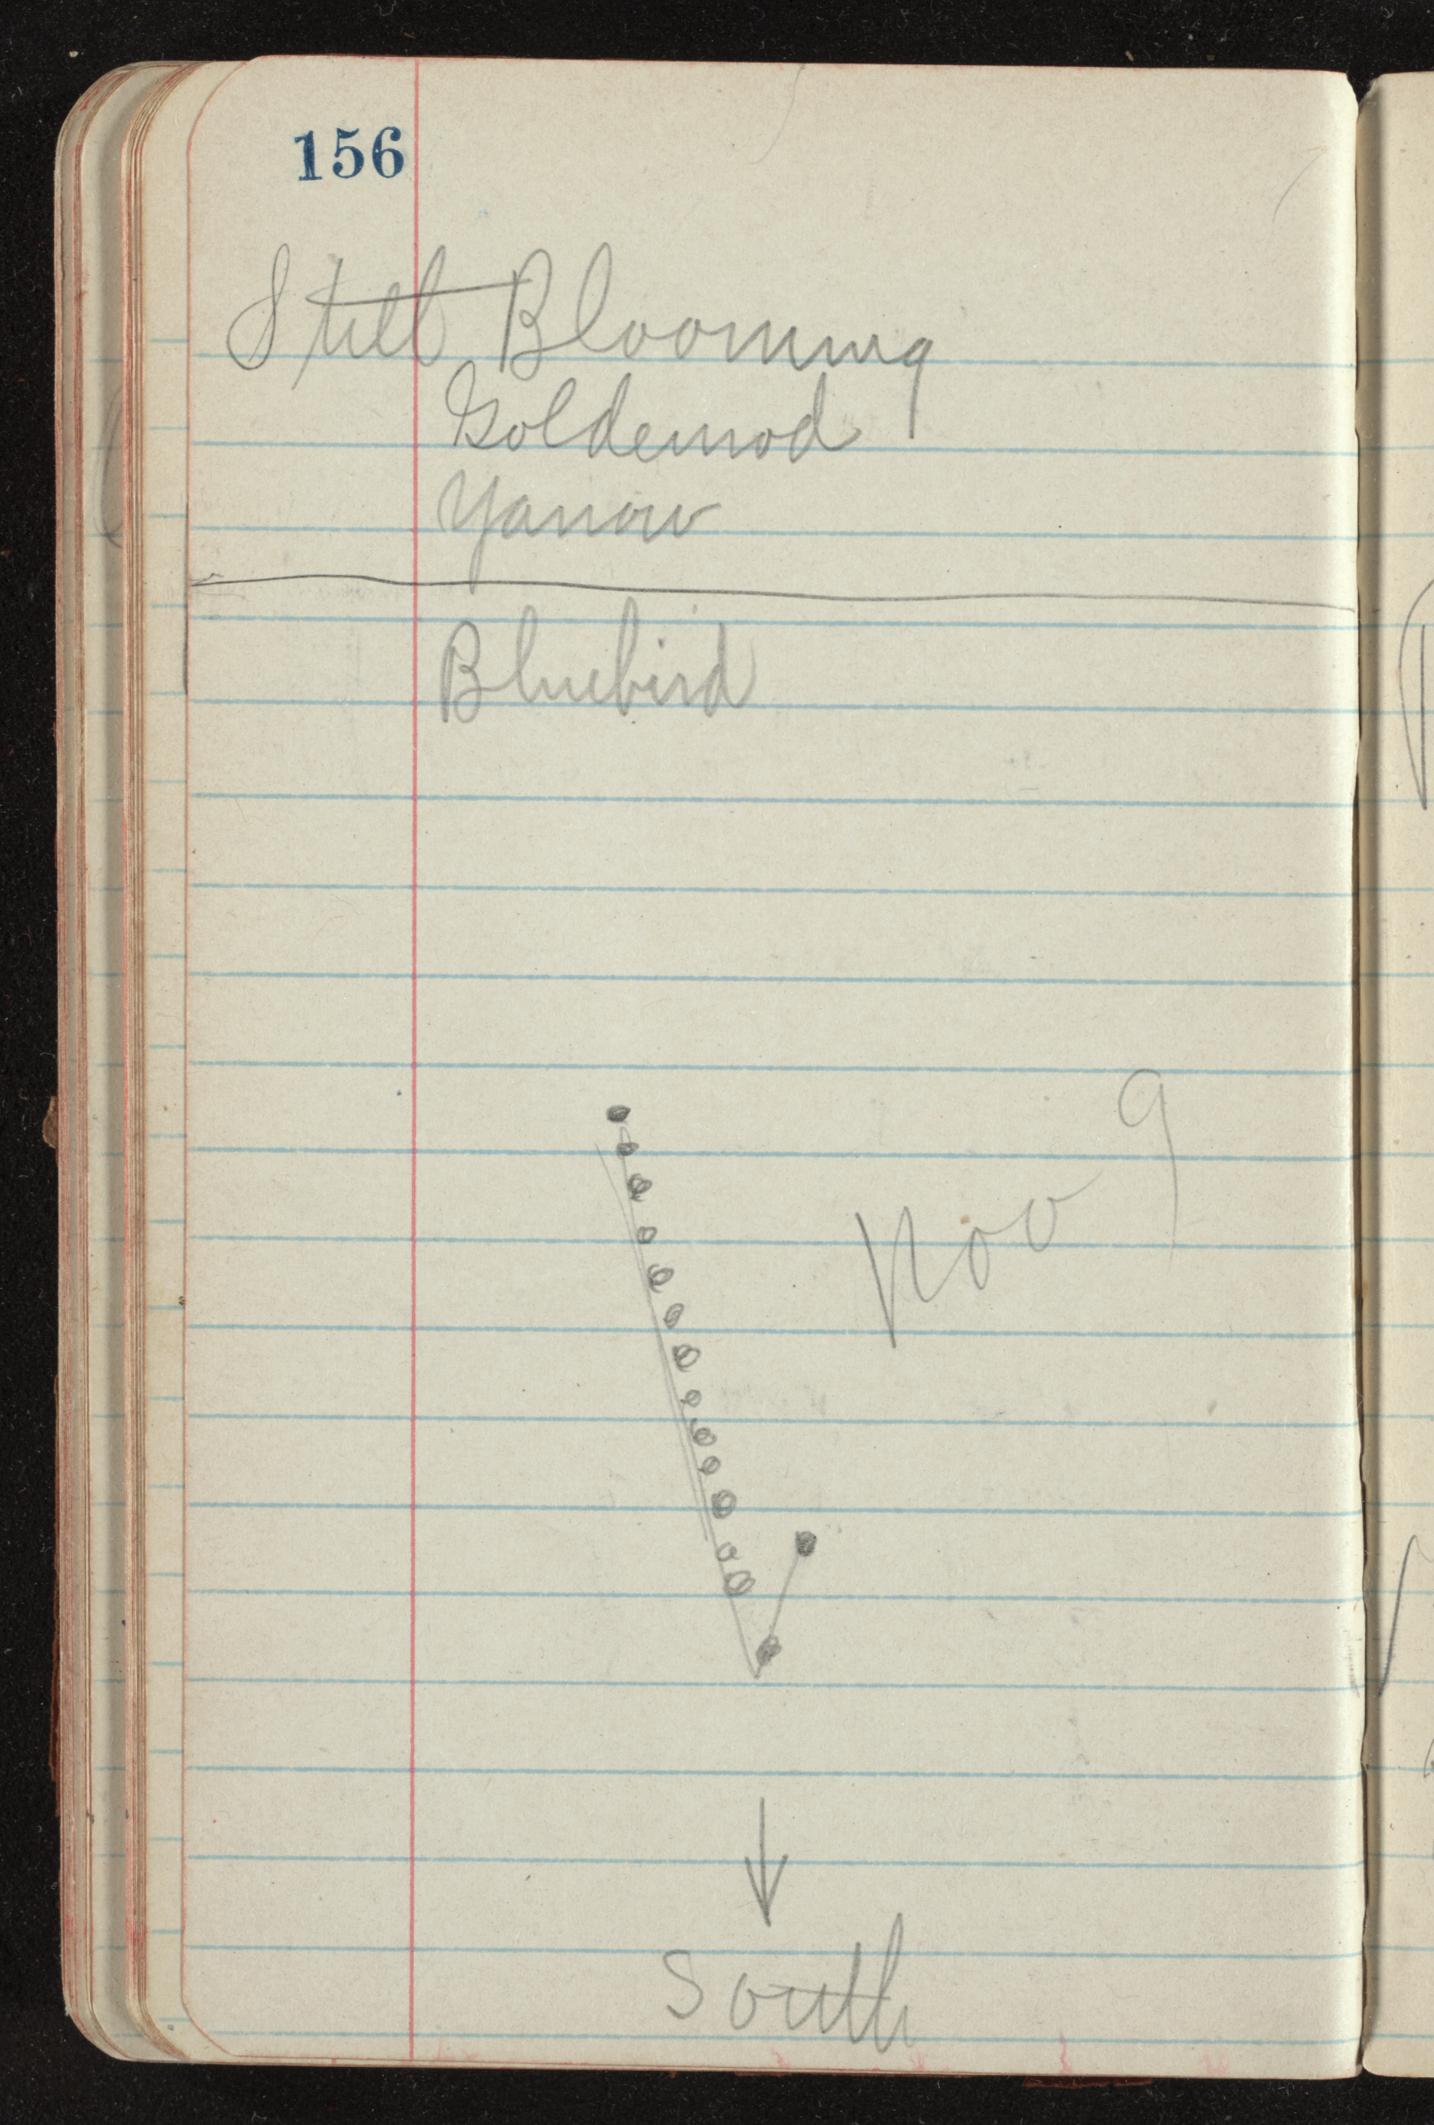 156
Still Blooming
Goldenrod
Yarrow
Bluebird
Nov 9
South